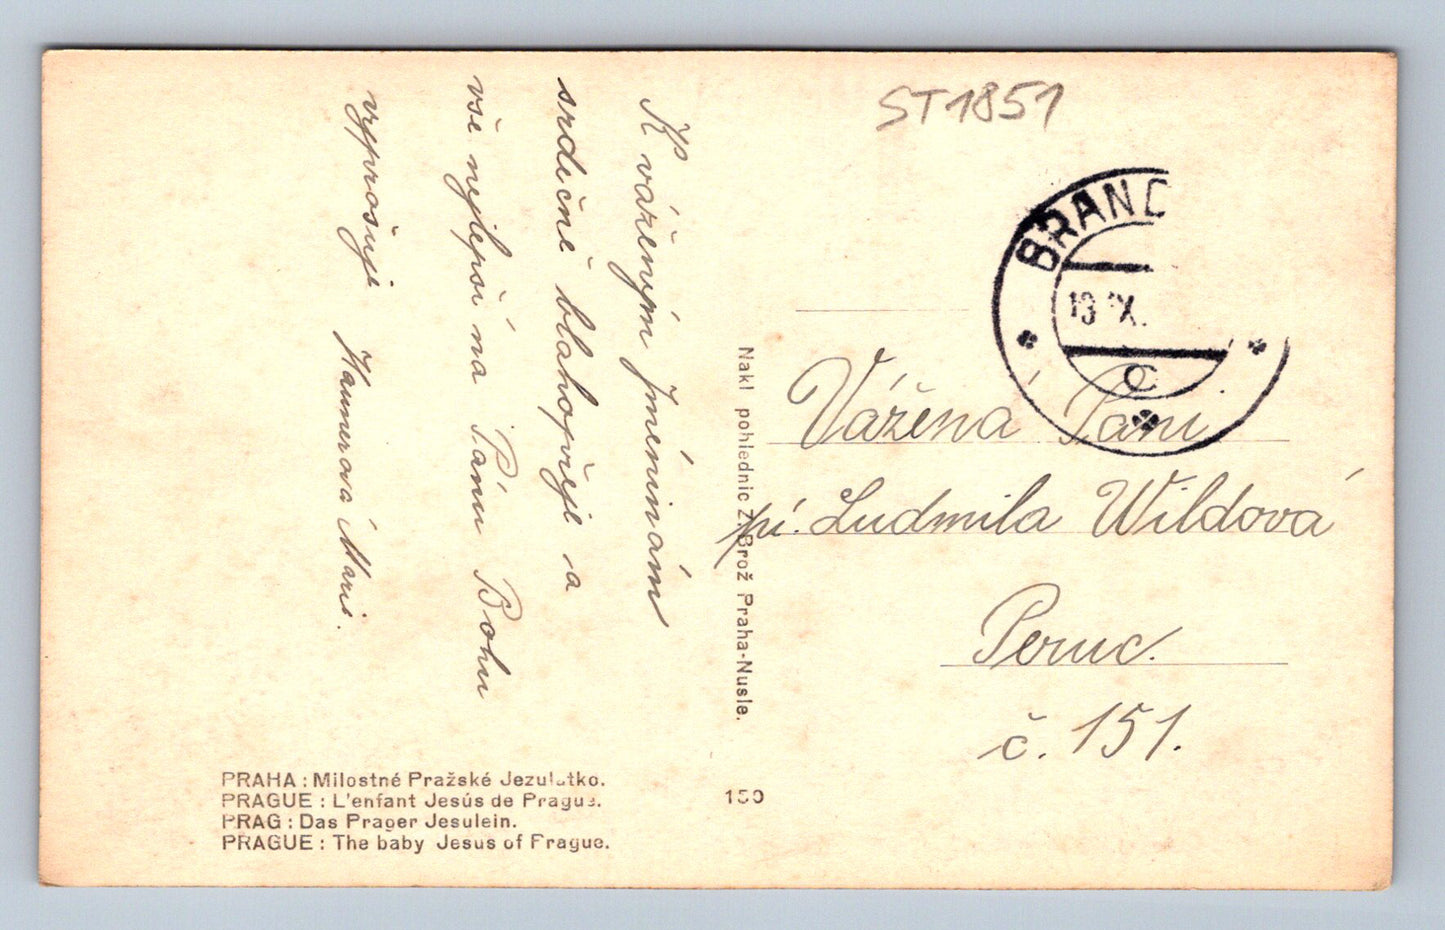 K váženým Jmeninám
srdečně blahopřeji a
vše nejlepší na Pánu Bohu
vyprošuje
Maria.
ST1851
BRAND
C
Vážená Paní
pí. Ludmila Wildová
Peruc.
č. 151.
Nakl pohlednic Z. Brož Praha-Nusle.
PRAHA : Milostné Pražské Jezulátko.
PRAGUE : L'enfant Jesús de Prague.
PRAG : Das Prager Jesulein.
PRAGUE : The baby Jesus of Prague.
150